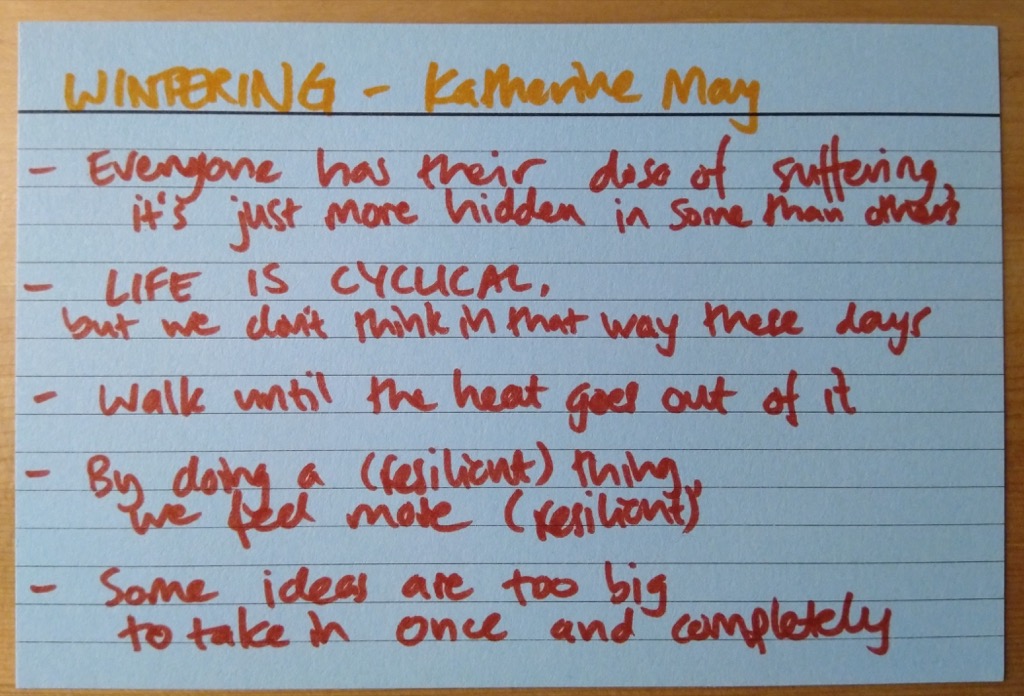 WINTERING - Katherine May
- Everyone has their dose of suffering,
it's just more hidden in some than others
- LIFE IS CYCLICAL,
but we don't think in that way these days
- Walk until the heat goes out of it
- By doing a (resilient) thing,
we feel more (resilient)
- Some ideas are too big
to take in once and completely